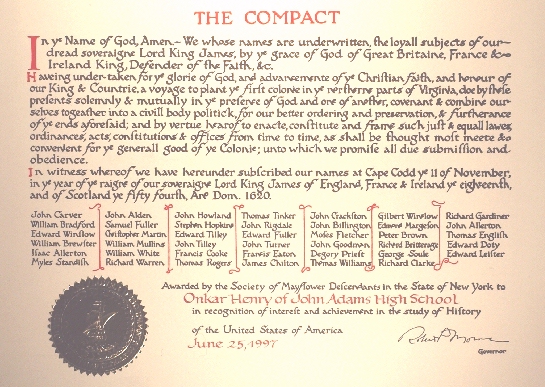 THE COMPACT
In ye Name of God, Amen.- We whose names are underwritten, the loyall subjects of our-
dread soveraigne Lord King James, by ye grace of God of Great Britaine, France &-
Ireland King, Defender of the Faith, &c.
Haveing under-taken for ye glorie of God, and advancemente of ye Christian faith, and honour of
our King & Countrie, a voyage to plant ye first colonie in ye northerne parts of Virginia, doe by these
presents solemnly & mutually in ye presence of God and one of another, covenant & combine our-
selves togeather into a civill body politick, for our better ordering and preservation, & furtherance
of ye ends aforesaid; and by vertue hearof to enacte, constitute and frame such just & equall lawes,
ordinances, acts, constitutions & offices from time to time, as shall be thought most meete &
convenient for ye generall good of ye Colonie; unto which we promise all due submission and-
obedience.
In witness whereof we have hereunder subscribed our names at Cape Codd ye 11 of November,
in ye year of ye raigne of our soveraigne Lord King James of England, France & Ireland ye eighteenth,
and of Scotland ye fifty fourth, Ano Dom. 1620.
John Carver John Alden John Howland Thomas Tinker John Crackston Gilbert Winslow Richard Gardiner
William Bradford Samuel Fuller Stephen Hopkins John Rigdale John Billington Edmond Margeson John Allerton
Edward Winslow Christopher Martin Edward Tilley Edward Fuller Moses Fletcher Peter Brown Thomas English
William Brewster William Mullins John Tilley John Turner John Goodman Richard Britterage Edward Doty
Isaac Allerton William White Francis Cooke Francis Eaton Degory Priest George Soule Edward Leister
Myles Standish Richard Warren Thomas Rogers James Chilton Thomas Williams Richard Clarke
Awarded by the Society of Mayflower Descendants in the State of New York to
Onkar Henry of John Adams High School
in recognition of interest and achievement in the study of History
of the United States of America
June 25, 1997
Governor